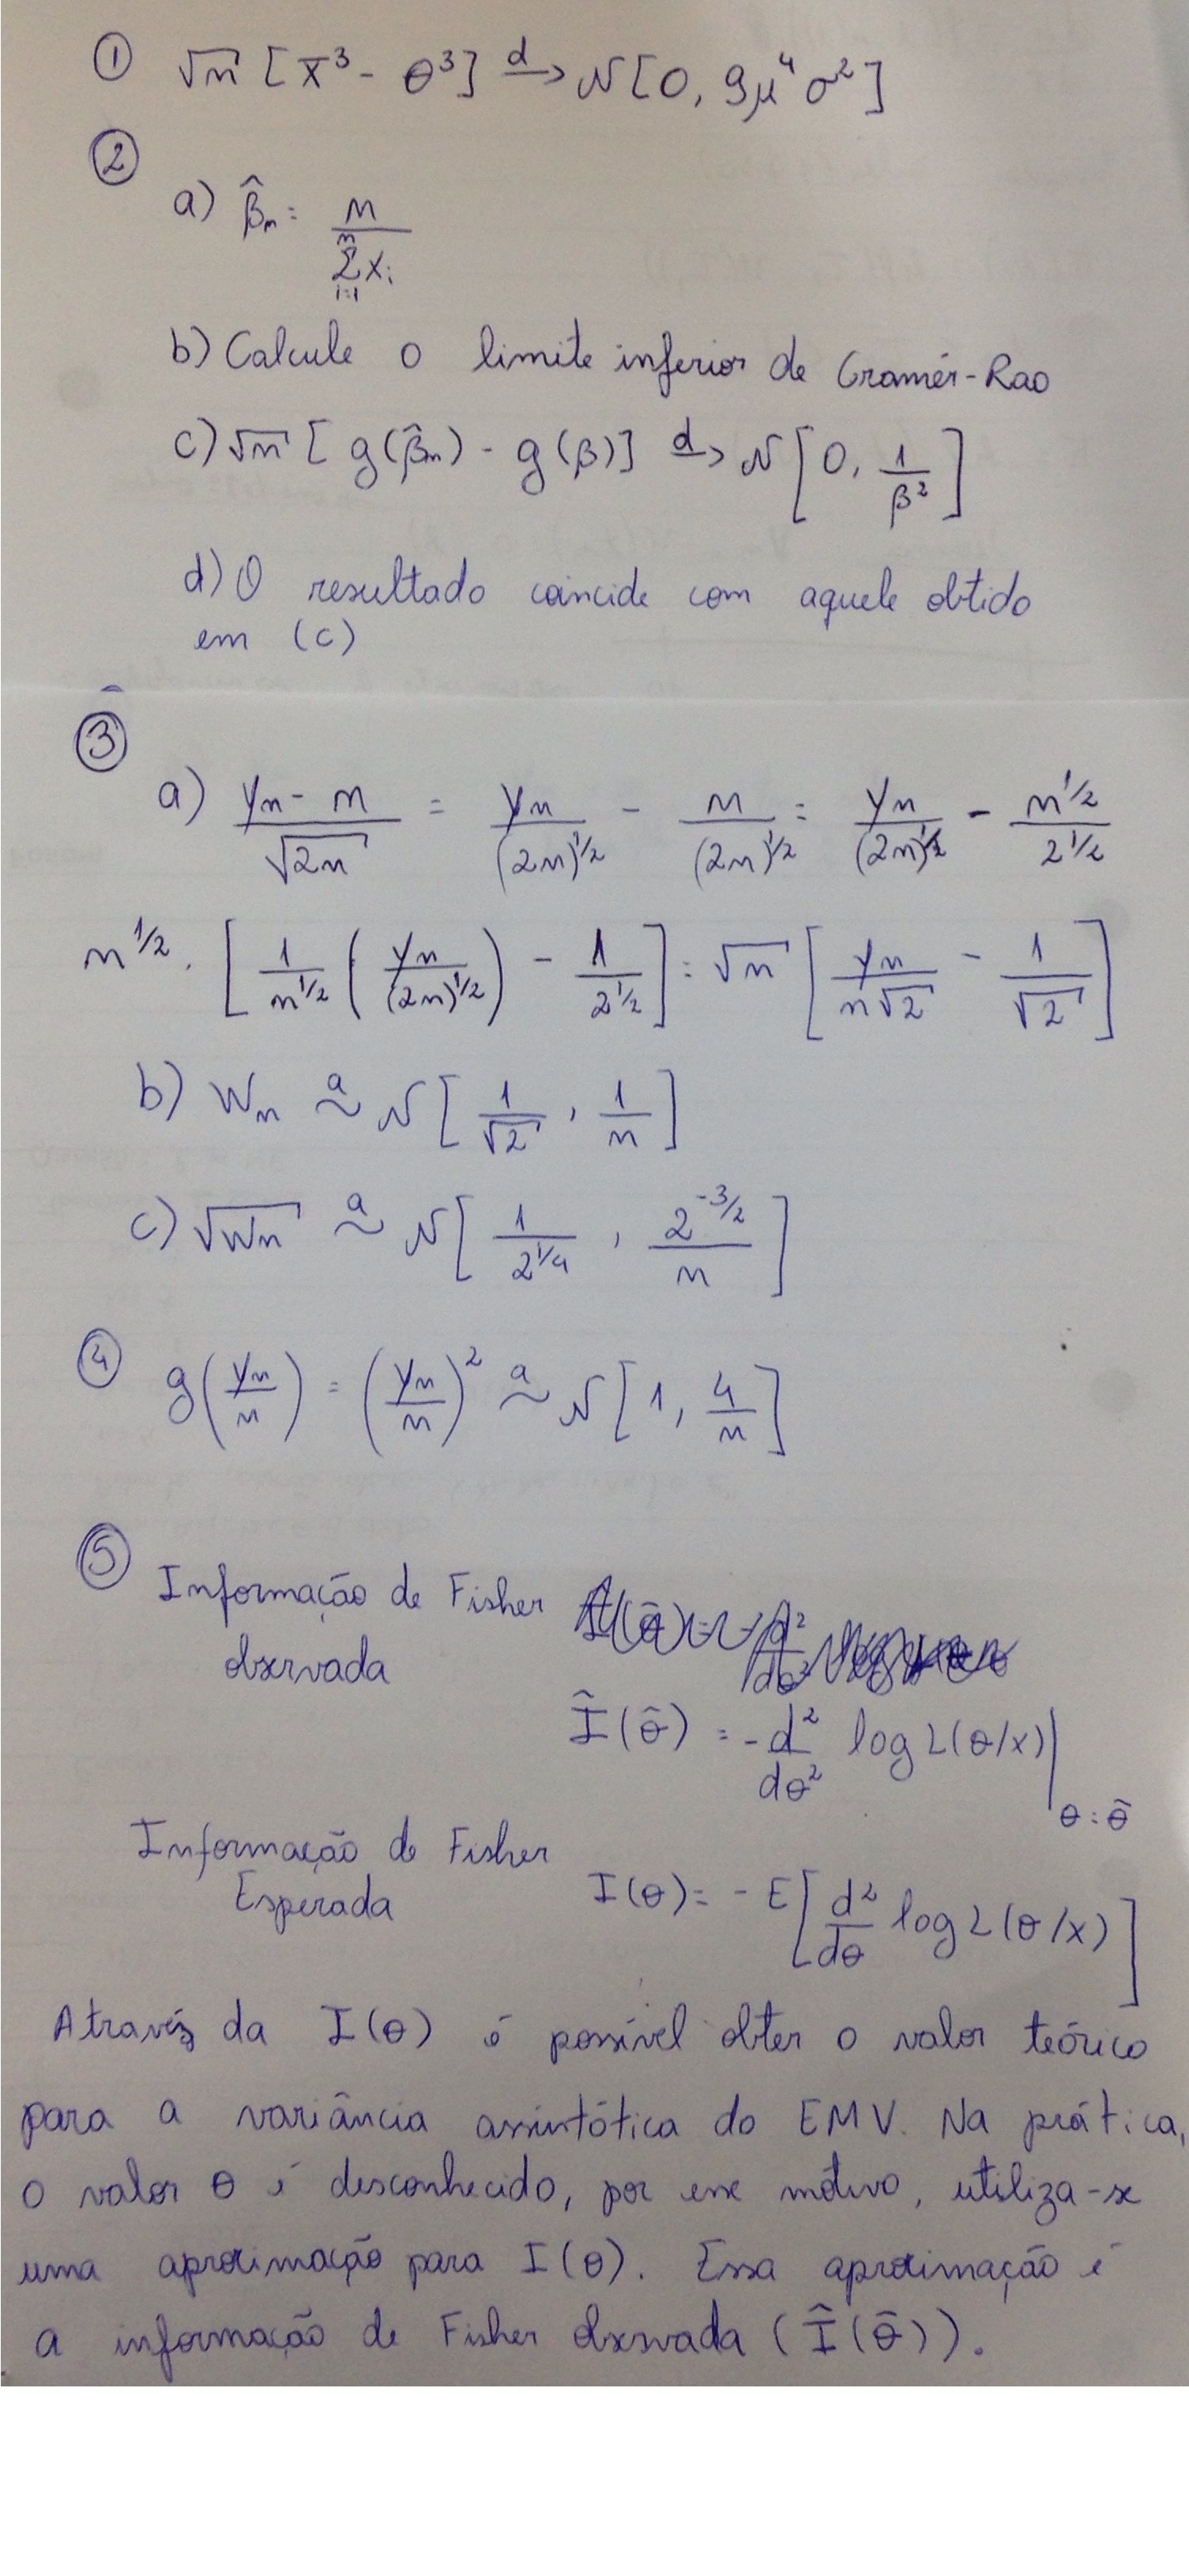 ① √n [X̄³ - θ³] d→ N[0, 9μ⁴σ²]
②
a) β̂n = n / Σ(i=1 → n) Xi
b) Calcule o limite inferior de Cramér-Rao
c) √n [g(β̂n) - g(β)] d→ N[0, 1/β²]
d) O resultado coincide com aquele obtido
em (c)
③
a) (Yn - n)/√2n = Yn/(2n)^1/2 - n/(2n)^1/2 = Yn/(2n)^1/2 - n^1/2/2^1/2
n^1/2 . [1/n^1/2 (Yn/(2n)^1/2) - 1/2^1/2] = √n [Yn/n√2 - 1/√2]
b) Wn a~ N[1/√2, 1/n]
c) √Wn a~ N[1/2^1/4, 2^-3/2/n]
④ g(Yn/n) = (Yn/n)² a~ N[1, 4/n]
⑤ Informação de Fisher
observada
Î(θ̂) = -d²/dθ² log L(θ/x)|θ=θ̂
Informação de Fisher
Esperada I(θ) = -E[d²/dθ log L(θ/x)]
Através da I(θ) é possível obter o valor teórico
para a variância assintótica do EMV. Na prática,
o valor θ é desconhecido, por esse motivo, utiliza-se
uma aproximação para I(θ). Essa aproximação é
a informação de Fisher observada (Î(θ̂)).